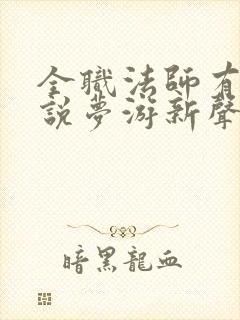 全職法師有
說夢游新聲
暗黑龍血